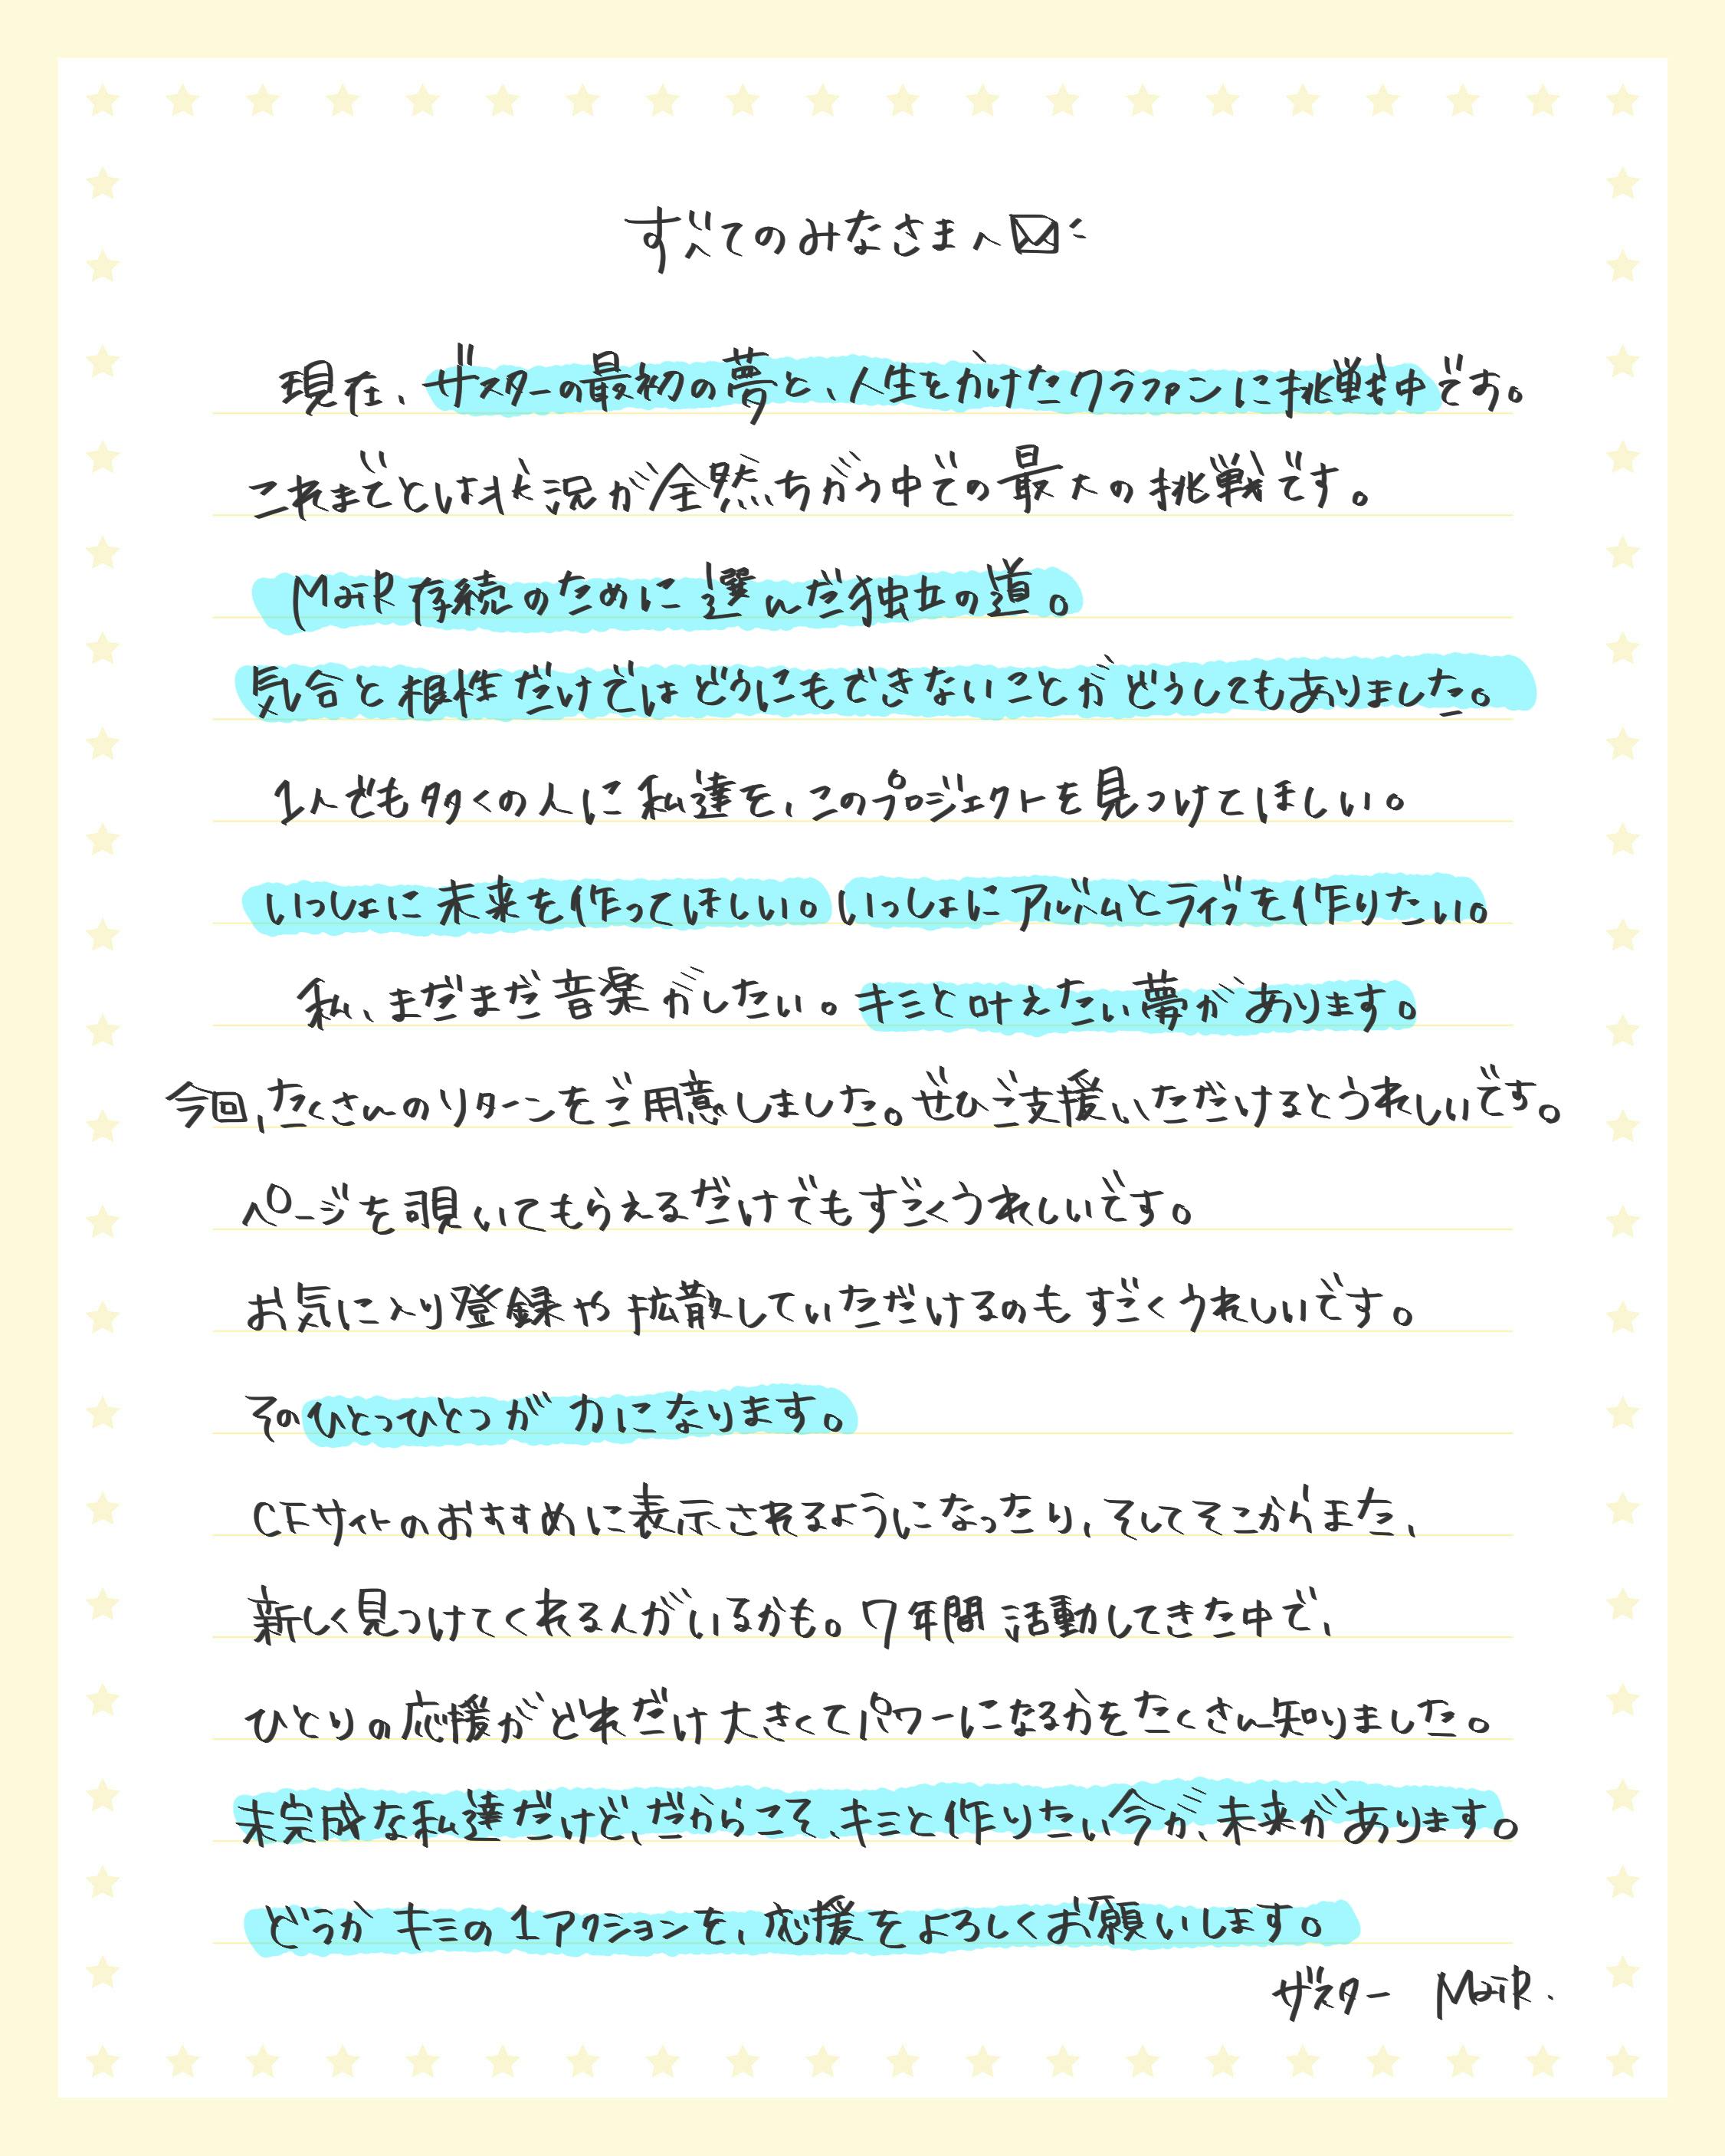 すべてのみなさまへ
現在、ザスターの最初の夢と、人生をかけたクラファンに挑戦中です。
これまでとは状況が全然ちがう中での最大の挑戦です。
MaiR存続のために選んだ独立の道。
気合と根性だけではどうにもできないことがどうしてもありました。
1人でも多くの人に私達を、このプロジェクトを見つけてほしい。
いっしょに未来を作ってほしい。いっしょにアルバムとライブを作りたい。
私、まだまだ音楽がしたい。キミと叶えたい夢があります。
今回、たくさんのリターンをご用意しました。ぜひご支援いただけるとうれしいです。
ページを覗いてもらえるだけでもすごくうれしいです。
お気に入り登録や拡散していただけるのもすごくうれしいです。
そのひとつひとつが力になります。
CFサイトのおすすめに表示されるようになったり、そしてそこからまた、
新しく見つけてくれる人がいるかも。7年間活動してきた中で、
ひとりの応援がどれだけ大きくてパワーになるかをたくさん知りました。
未完成な私達だけど、だからこそ、キミと作りたい今が、未来があります。
どうかキミの1アクションを、応援をよろしくお願いします。
ザスター MaiR.